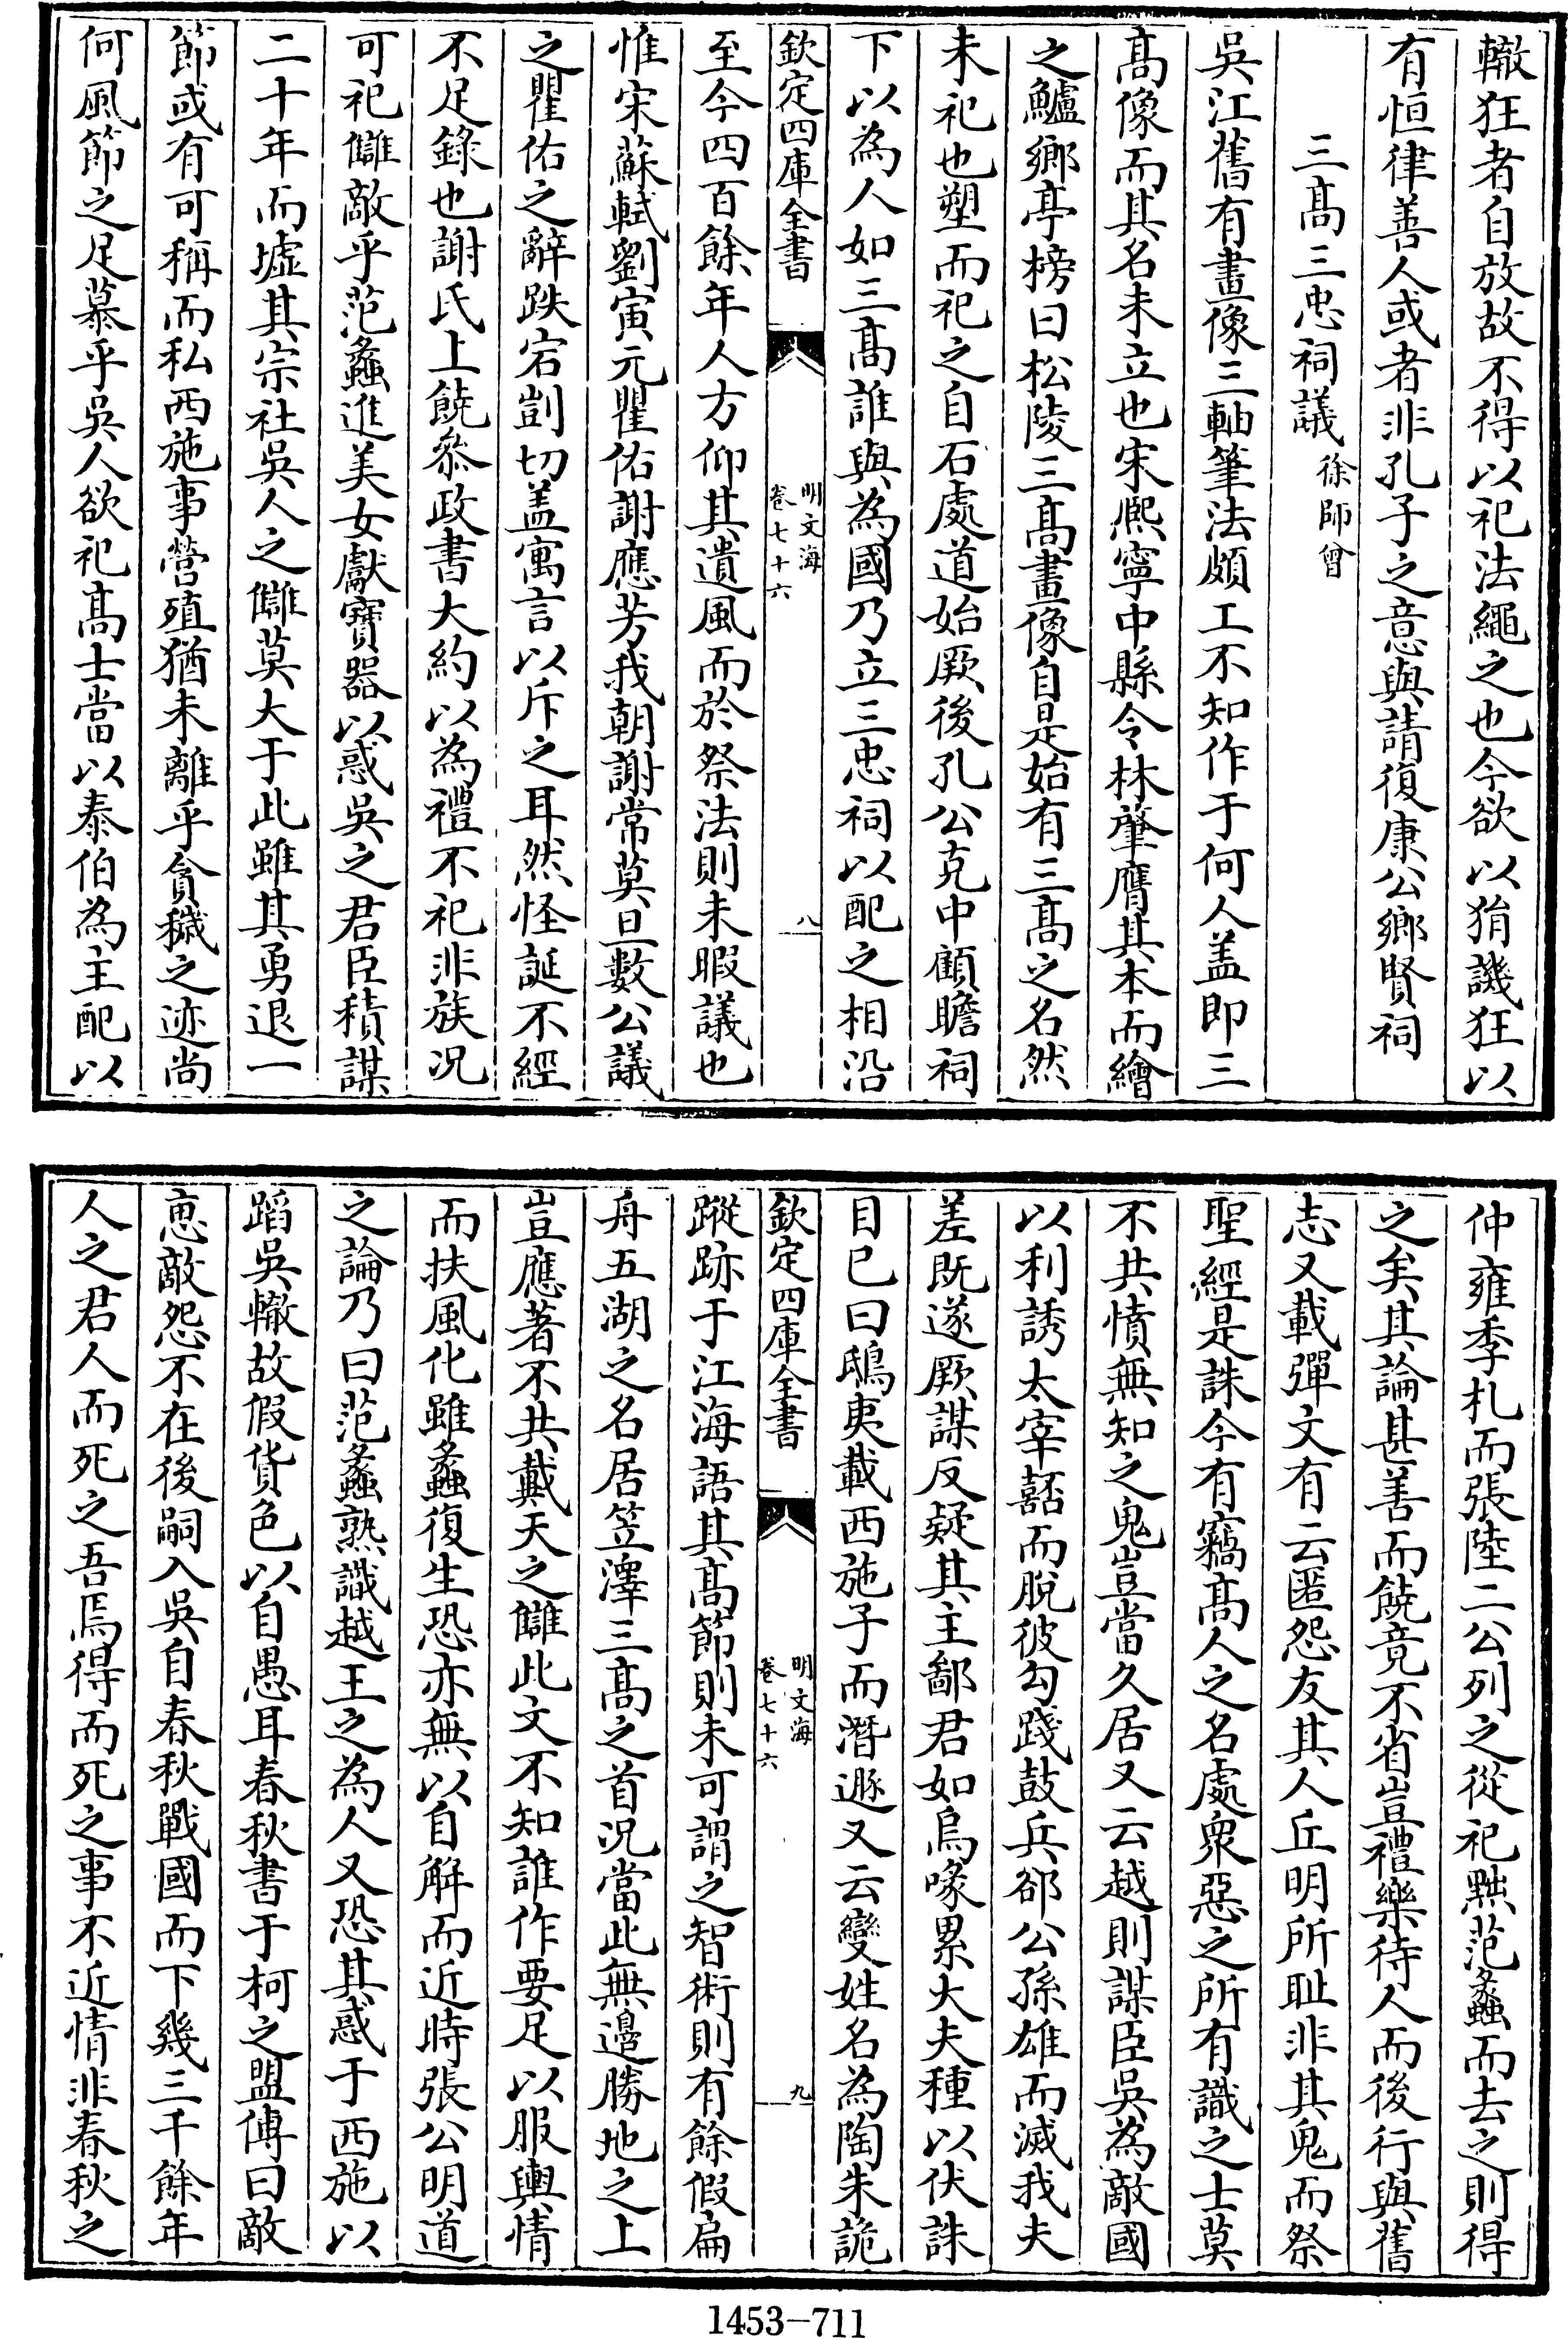 轍狂者自放故不得以祀法繩之也今欲以狷譏狂以
有恒律善人或者非孔子之意與請復康公鄉賢祠
三髙三忠祠議 徐師曾
吳江舊有畫像三軸筆法頗工不知作于何人盖即三
髙像而其名未立也宋熈寧中縣令林肇膺其本而繪
之鱸鄉亭榜曰松陵三髙畫像自是始有三髙之名然
未祀也塑而祀之自石處道始厥後孔公克中顧瞻祠
下以為人如三髙誰與為國乃立三忠祠以配之相沿
欽定四庫全書
明文海
卷七十六
八
至今四百餘年人方仰其遺風而於祭法則未暇議也
惟宋蘇軾劉寅元瞿佑謝應芳我朝謝常莫旦數公議
之瞿佑之辭跌宕剴切盖寓言以斥之耳然怪誕不經
不足錄也謝氏上饒叅政書大約以為禮不祀非族况
可祀讎敵乎范蠡進美女獻寶器以惑吳之君臣積謀
二十年而墟其宗社吳人之讎莫大于此雖其勇退一
節或有可稱而私西施事營殖猶未離乎貪穢之迹尚
何風節之足慕乎吳人欲祀髙士當以泰伯為主配以
仲雍季札而張陸二公列之從祀黜范蠡而去之則得
之矣其論甚善而饒竟不省豈禮樂待人而後行與舊
志又載彈文有云匿怨友其人丘明所耻非其鬼而祭
聖經是誅今有竊髙人之名處衆惡之所有識之士莫
不共憤無知之鬼豈當久居又云越則謀臣吳為敵國
以利誘太宰嚭而脫彼勾踐鼓兵郤公孫雄而滅我夫
差既遂厥謀反疑其主鄙君如烏喙累大夫種以伏誅
目已曰鴟夷載西施子而潛遯又云變姓名為陶朱詭
欽定四庫全書
明文海
卷七十六
九
蹤跡于江海語其髙節則未可謂之智術則有餘假扁
舟五湖之名居笠澤三髙之首况當此無邉勝地之上
豈應著不共戴天之讎此文不知誰作要足以服輿情
而扶風化雖蠡復生恐亦無以自解而近時張公明道
之論乃曰范蠡熟識越王之為人又恐其惑于西施以
蹈吳轍故假貨色以自愚耳春秋書于柯之盟傅曰敵
恵敵怨不在後嗣入吳自春秋戰國而下幾三千餘年
人之君人而死之吾焉得而死之事不近情非春秋之
1453-711